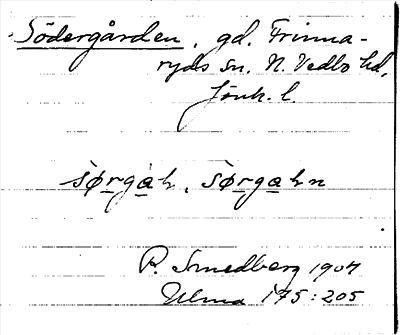 Södergården, gd. Frinna-
ryds sn. N. Vedbo hd,
Jönk. l.
R. Smedberg 1904
Ulma 175:205